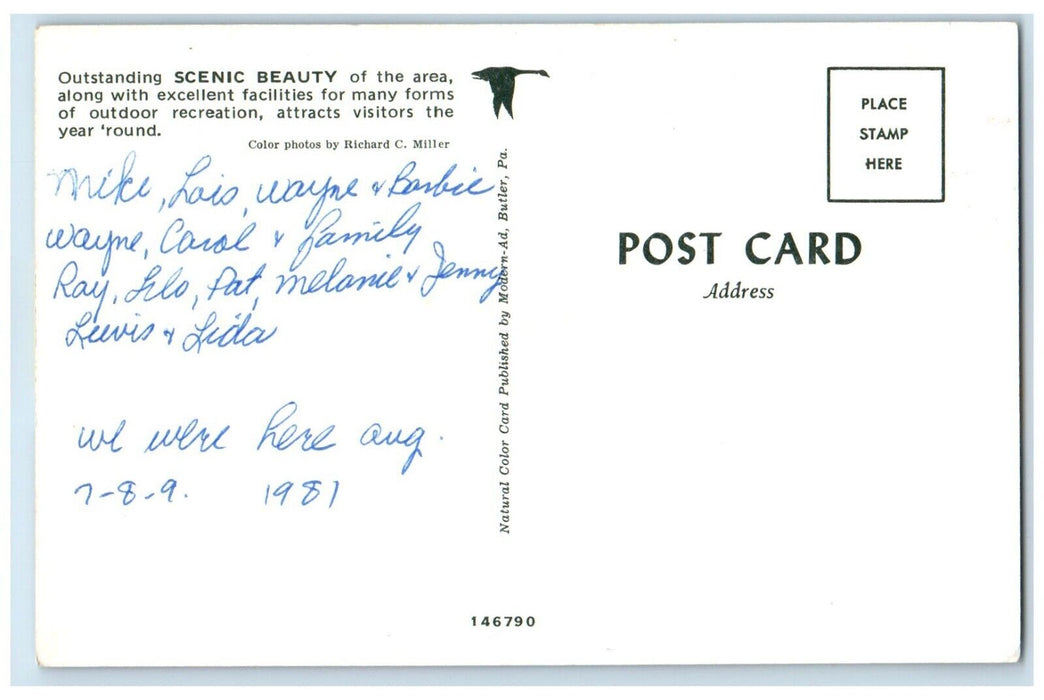 Outstanding SCENIC BEAUTY of the area,
along with excellent facilities for many forms
of outdoor recreation, attracts visitors the
year 'round.
Color photos by Richard C. Miller
Mike, Lois, Wayne & Barbie
Wayne, Carol & family
Ray, Flo, Pat, Melanie & Jenny
Lewis & Lida
we were here aug.
7-8-9. 1981
Natural Color Card Published by Modern-Ad, Butler, Pa.
PLACE
STAMP
HERE
POST CARD
Address
146790